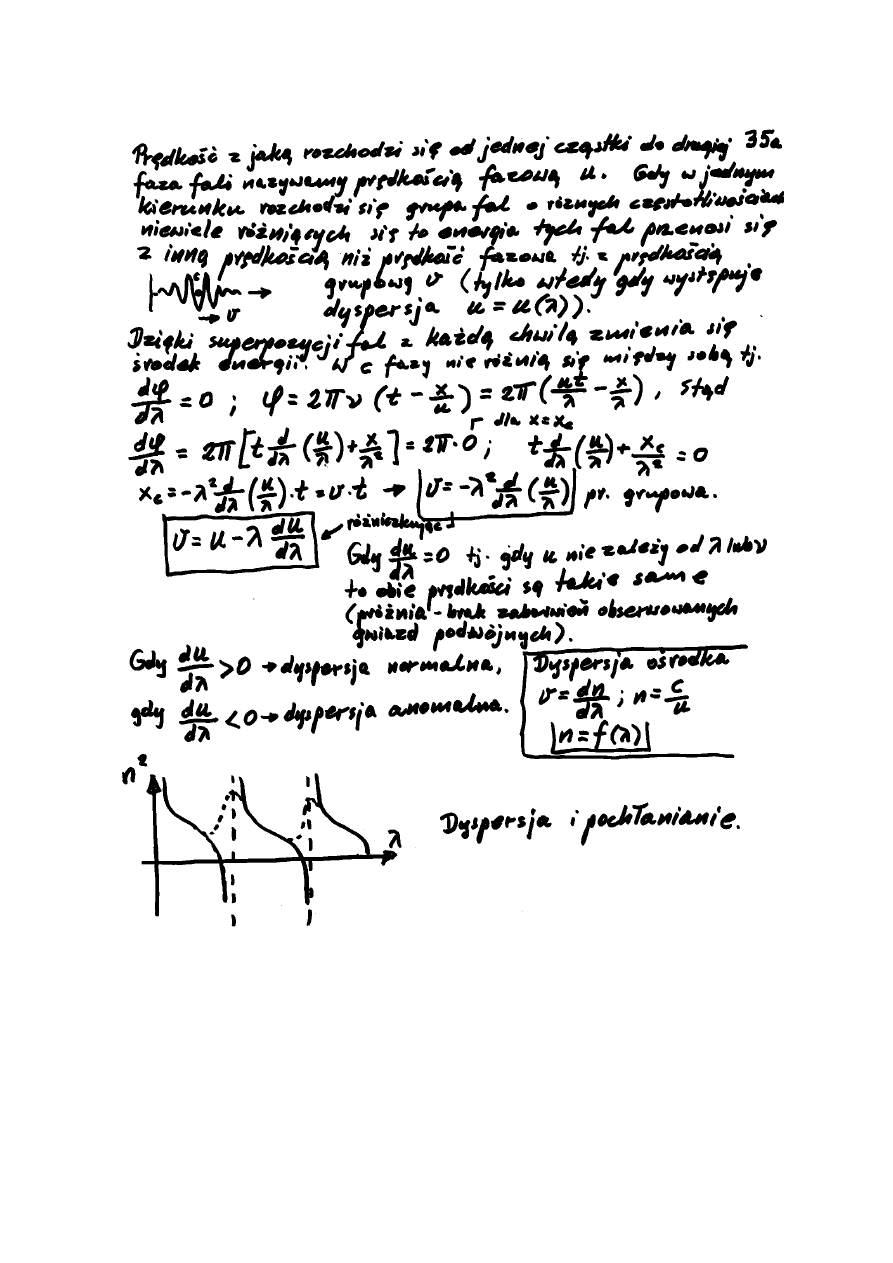 Prędkość z jaką rozchodzi się od jednej cząstki do drugiej 35a
faza fali nazywamy prędkością fazową u. Gdy w jednym
kierunku rozchodzi się grupa fal o różnych częstotliwościach
niewiele różniących się to energia tych fal przenosi się
z inną prędkością niż prędkość fazowa tj. z prędkością
grupową v (tylko wtedy gdy występuje
c
→ v
dyspersja u = u(λ)).
Dzięki superpozycji fal z każdą chwilą zmienia się
środek energii. W c fazy nie różnią się między sobą tj.
dφ/dλ = 0 ; φ = 2πν (t - x/u) = 2π (ut/λ - x/λ) , stąd
dla x = x_c
dφ/dλ = 2π [t d/dλ (u/λ) + x/λ²] = 2π·0 ; t d/dλ (u/λ) + x_c/λ² = 0
x_c = -λ² d/dλ (u/λ)·t = v·t → v = -λ² d/dλ (u/λ) pr. grupowa.
v = u - λ du/dλ ← różniczkując
Gdy du/dλ = 0 tj. gdy u nie zależy od λ lub ν
to obie prędkości są takie same
(próżnia - brak zabarwień obserwowanych
gwiazd podwójnych).
Gdy du/dλ > 0 → dyspersja normalna,
gdy du/dλ < 0 → dyspersja anomalna.
Dyspersja ośrodka
v = dn/dλ ; n = c/u
n = f(λ)
n²
λ
Dyspersja i pochłanianie.